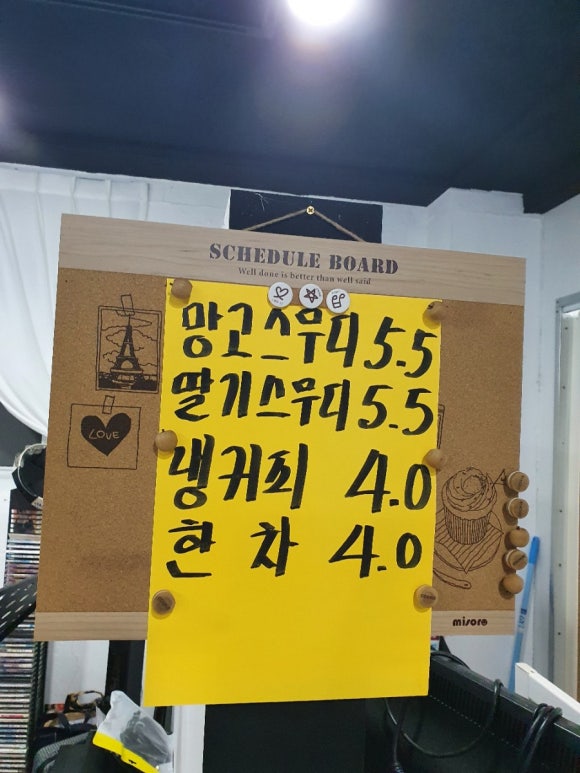 SCHEDULE BOARD
Well done is better than well said
망고스무디 5.5
딸기스무디 5.5
냉커피 4.0
현 차 4.0
LOVE
misoro